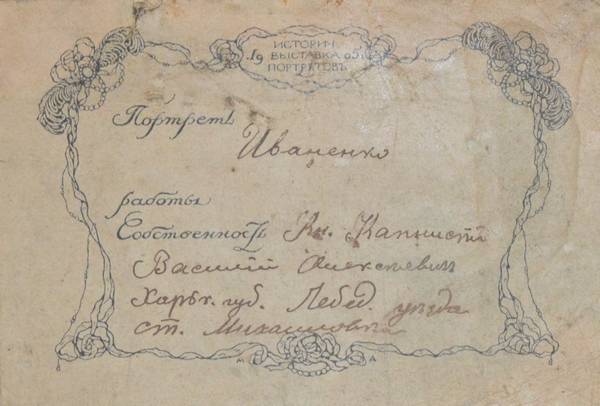 ИСТОРИЧ.
19 ВЫСТАВКА 05
ПОРТРЕТОВЪ
Портретъ
Иваненко
работы
Собственность Кн. Капнистъ
Василій Алексѣевичъ
Харьк. губ. Лебед. уѣзда
ст. Михайловка